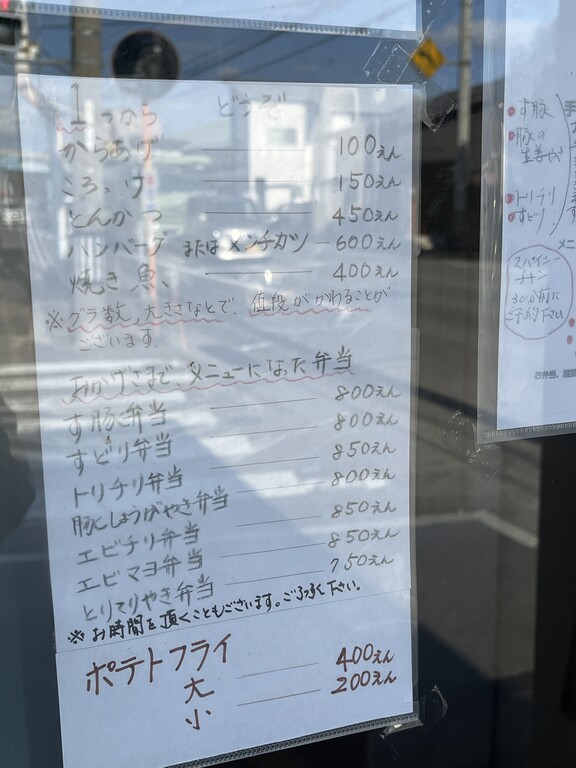 1つから どうぞ
からあげ 100えん
ころっけ 150えん
とんかつ 450えん
ハンバーグ または メンチカツ 600えん
焼き魚、 400えん
※グラム数、大きさなどで、値段がかわることが
ございます。
おかげさまで、メニューになった弁当
す豚弁当 800えん
すどり弁当 800えん
トリチリ弁当 850えん
豚しょうがやき弁当 800えん
エビチリ弁当 850えん
エビマヨ弁当 850えん
とりてりやき弁当 750えん
※お時間を頂くこともございます。ごろく下さい。
ポテトフライ
大 400えん
小 200えん
す豚
豚の
生姜やき
トリチリ
すどり
スパイシー
チキン
30分前に
ご予約下さい
お弁当、